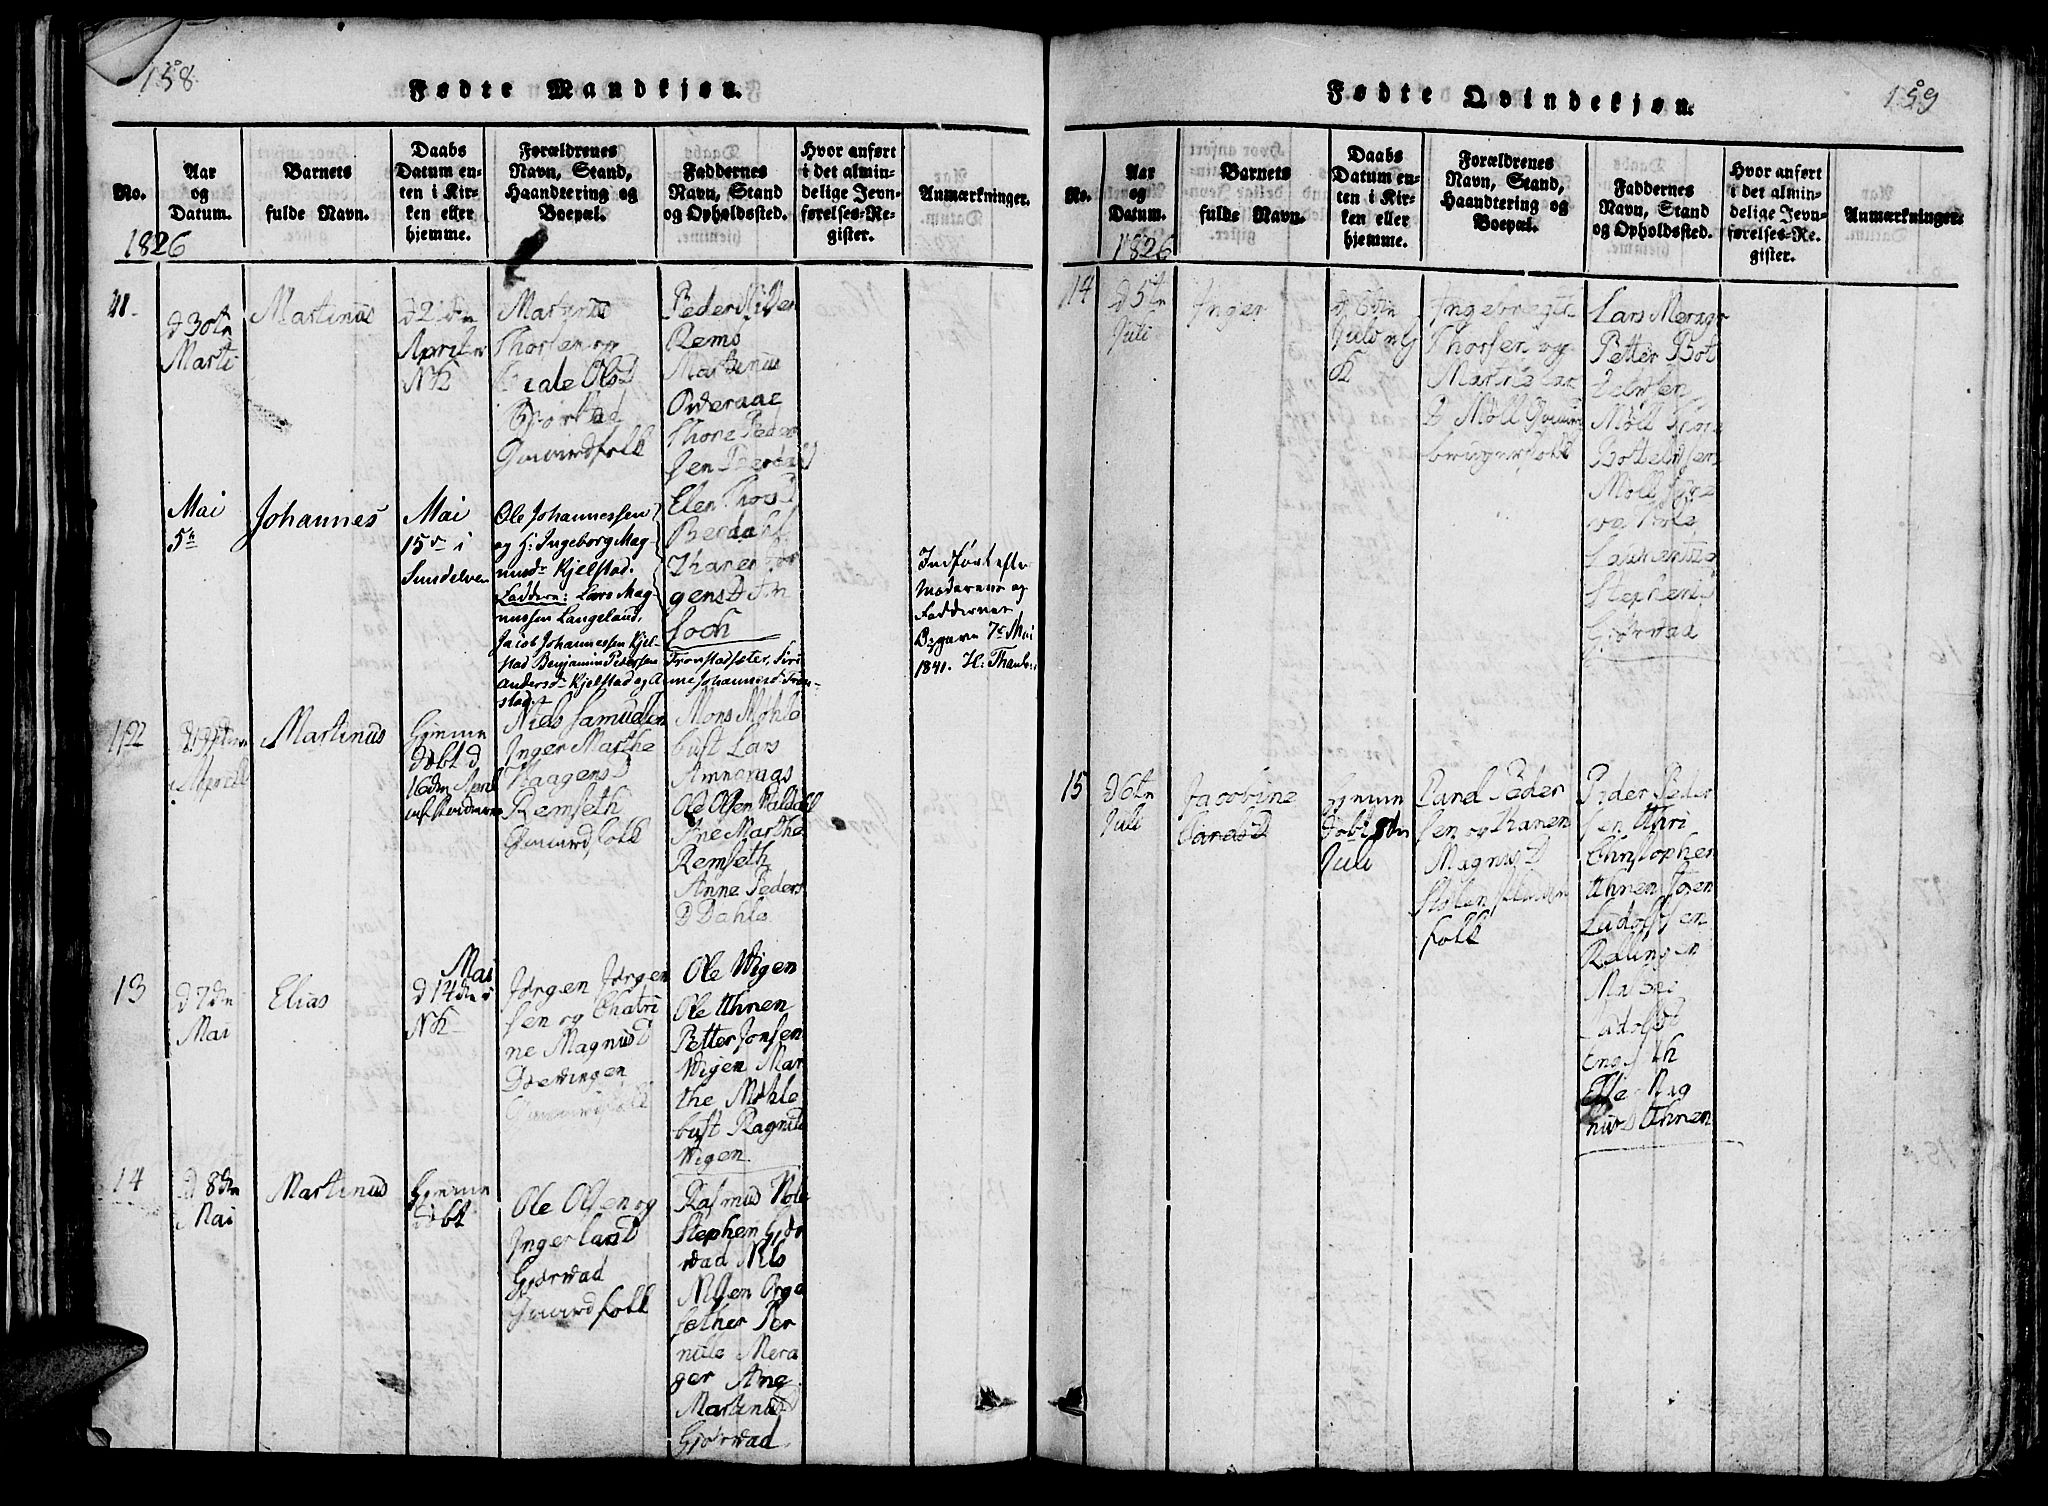 158
Fødte Mandkjøn.
No.
Aar
og
Datum.
Barnets
fulde Navn.
Daabs
Datum en-
ten i Kir-
ken eller
hjemme.
Forældrenes
Navn, Stand,
Haandtering og
Boepæl.
Faddernes
Navn, Stand
og Opholdssted.
Hvor anført
i det almin-
delige Jevn-
førelses-Re-
gister.
Anmærkninger.
1826
11.
d 30tn
Marti
Martinus
d 21dn
April
NK
Martinus
Thorsen og
Olsd
Giørstad
Gaardfolk
Peder
Rems
Martinus
Overaae
Thore Peder
sen Berdal
Elen Thorsd
Berdahl
Thanen Jør
gensd
Soch
Mai
5te
Johannes
Mai
15de i
Sundelven
Ole Johannessen
og H: Ingeborg Mag-
nusdr Kjelstad.
Faddere: Lars Mag-
nussen Langeland,
Jacob Johannessen Kjel-
stad Benjamin Pedersen Tronstadsæter, Siri
Andersdr Kjelstad og Ane Johannesdr Tron-
stad
Indført efter
Moderens og
Faddernes
Opgave 7de Mai
1841. H: Thaulow
12
April
Martinus
Hjemme
døbt d
16dn April
Niels Samuelsen
Inger Marthe
Haagensd
Remseth
Gaardfolk
Mons Mohle
bust Lars
Amdrags
Ole Olsen Valdahl
Ane Marthe
Remseth
Anne Peders
D Dahle
13
d 7dn
Mai
Elias
Mai
d 14dn i
NK
Jørgen Jørgen
sen og Chatri
ne Magnusd
Dævingen
Gaardfolk
Ole Wigen
Ole Uhnen
Petter Jonsen
Wigen Mar
the Mohle
bust Ragnild
Wigen
14
d 8dn
Mai
Martinus
Hjemme
døbt
Ole Olsen og
Inger Larsd
Gjørvad
Gaardfolk
Rasmus Vole
Stephen Gjør
vad Nils
Nilsen Orge
sether Per
nille Mera
ger Ane
Martinusd
Gjørvad
159
Fødte Qvindekjøn.
No.
Aar
og
Datum.
Barnets
fulde Navn.
Daabs
Datum en-
ten i Kir-
ken eller
hjemme.
Forældrenes
Navn, Stand,
Haandtering og
Boepæl.
Faddernes
Navn, Stand
og Opholdssted.
Hvor anført
i det almin-
delige Jevn-
førelses-Re-
gister.
Anmærkninger.
1826
14
d 5tn
Juli
Inger
Juli
K
Ingebregt
Thorsen og
Lar
D Möll
brugerfolk
Lars Merager
Petter Bot
telvsen
Möll
Bottelvsen
Möll
Laurentse
Stephensd
Gjørvad
15
d 6tn
Juli
Jacobine
Hjemme
døbt 8dn
Juli
Parel Peder
sen og Thanen
Magnusd
folk
Peder Peder
sen Uhri
Christopher
Uhnen Joren
Ludolfsen
Rellingen
Ludolfsd
Engseth
Else Mag
nusd Uhnen